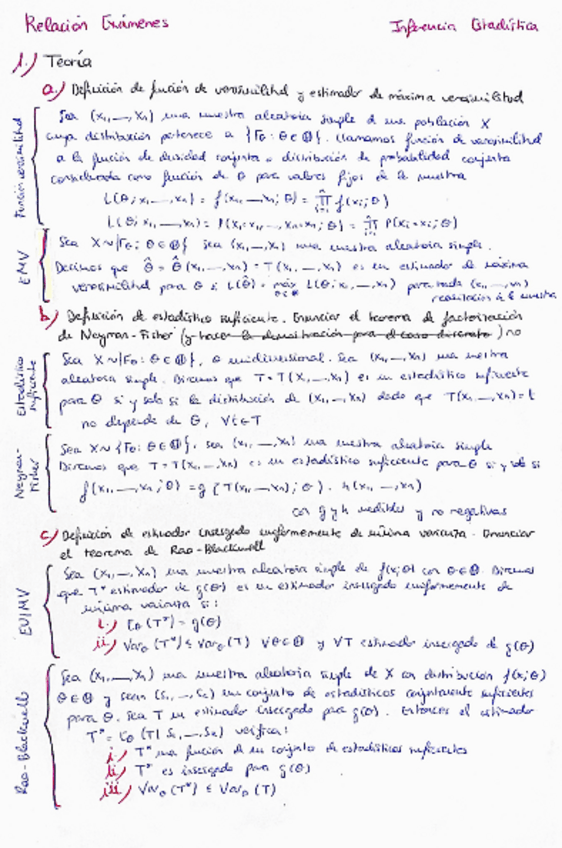 Relación Exámenes
Inferencia Estadística
1.) Teoría
a) Definición de función de verosimilitud y estimador de máxima verosimilitud
Función verosimilitud
Sea (x₁,—,Xₙ) una muestra aleatoria simple de una población X
cuya distribución pertenece a {F_θ: θ∈Θ}. Llamamos función de verosimilitud
a la función de densidad conjunta o distribución de probabilidad conjunta
considerada como función de θ para valores fijos de la muestra
L(θ; x₁,—,xₙ) = f(x₁,—,xₙ; θ) = ∏ᵢ₌₁ⁿ f(xᵢ; θ)
L(θ; x₁,—,xₙ) = P(X₁=x₁,—,Xₙ=xₙ; θ) = ∏ᵢ₌₁ⁿ P(Xᵢ=xᵢ; θ)
EMV
Sea X~{F_θ: θ∈Θ} sea (x₁,—,Xₙ) una muestra aleatoria simple.
Decimos que θ̂ = θ̂(x₁,—,xₙ) = T(x₁,—,xₙ) es un estimador de máxima
verosimilitud para θ si L(θ̂) = máx_{θ∈Θ} L(θ; x₁,—,xₙ) para cada (x₁,—,xₙ)
realización de la muestra
b) Definición de estadístico suficiente. Enunciar el teorema de factorización
de Neyman-Fisher (y hacer la demostración para el caso discreto) no
Estadístico suficiente
Sea X~{F_θ: θ∈Θ}, θ unidimensional. Sea (x₁,—,Xₙ) una muestra
aleatoria simple. Diremos que T=T(X₁,—,Xₙ) es un estadístico suficiente
para θ si y solo si la distribución de (x₁,—,Xₙ) dado que T(x₁,—,Xₙ)=t
no depende de θ, ∀t∈T
Neyman-Fisher
Sea X~{F_θ: θ∈Θ}, sea (x₁,—,Xₙ) una muestra aleatoria simple
Diremos que T=T(X₁,—,Xₙ) es un estadístico suficiente para θ si y solo si
f(x₁,—,xₙ; θ) = g(T(x₁,—,xₙ); θ) · h(x₁,—,xₙ)
con g y h medibles y no negativas
c) Definición de estimador insesgado uniformemente de mínima varianza. Enunciar
el teorema de Rao-Blackwell
EUIMV
Sea (x₁,—,Xₙ) una muestra aleatoria simple de f(x;θ) con θ∈Θ. Diremos
que T* estimador de g(θ) es un estimador insesgado uniformemente de
mínima varianza si:
i.) E_θ(T*) = g(θ)
ii) Var_θ(T*) ≤ Var_θ(T) ∀θ∈Θ y ∀T estimador insesgado de g(θ)
Rao-Blackwell
Sea (x₁,—,Xₙ) una muestra aleatoria simple de X con distribución f(x;θ)
θ∈Θ y sean (S₁,—,Sₖ) un conjunto de estadísticos conjuntamente suficientes
para θ. Sea T un estimador insesgado para g(θ). Entonces el estimador
T* = E_θ(T| S₁,—,Sₖ) verifica:
i) T* una función de un conjunto de estadísticos suficientes
ii) T* es insesgado para g(θ)
iii) Var_θ(T*) ≤ Var_θ(T)